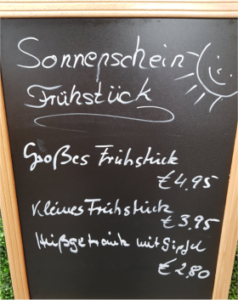 Sonnenschein
Frühstück
Großes Frühstück
€ 4,95
Kleines Frühstück
€ 3,95
Heißgetränk mit Gipfel
€ 2,80